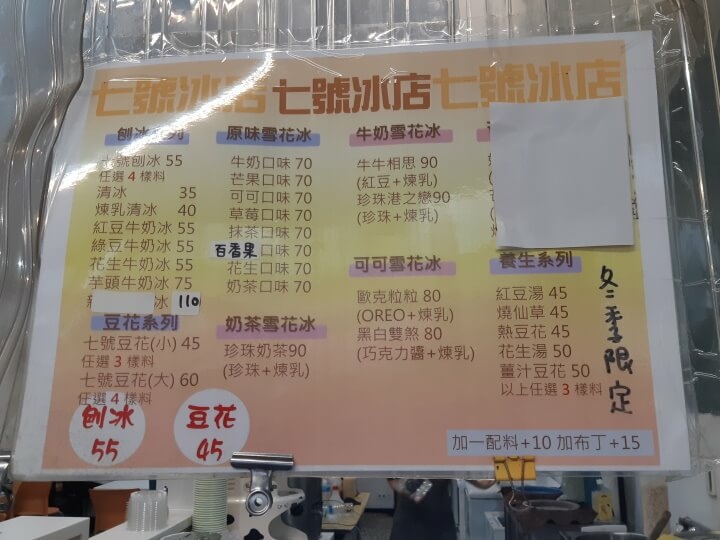 七號冰店 七號冰店 七號冰店
刨冰系列
七號刨冰 55
任選 4 樣料
清冰 35
煉乳清冰 40
紅豆牛奶冰 55
綠豆牛奶冰 55
花生牛奶冰 55
芋頭牛奶冰 75
冰 110
豆花系列
七號豆花(小) 45
任選 3 樣料
七號豆花(大) 60
任選 4 樣料
刨冰
55
豆花
45
原味雪花冰
牛奶口味 70
芒果口味 70
可可口味 70
草莓口味 70
抹茶口味 70
百香果口味 70
花生口味 70
奶茶口味 70
奶茶雪花冰
珍珠奶茶90
(珍珠+煉乳)
牛奶雪花冰
牛牛相思 90
(紅豆+煉乳)
珍珠港之戀90
(珍珠+煉乳)
可可雪花冰
歐克粒粒 80
(OREO+煉乳)
黑白雙煞 80
(巧克力醬+煉乳)
養生系列
紅豆湯 45
燒仙草 45
熱豆花 45
花生湯 50
薑汁豆花 50
以上任選 3 樣料
冬季限定
加一配料+10 加布丁+15